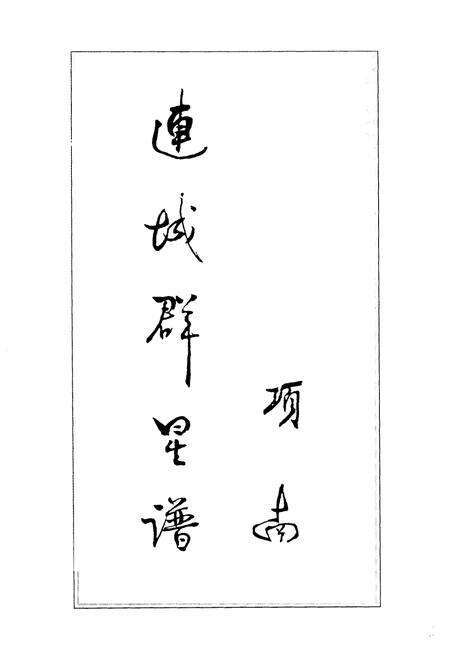 連城群星譜
项南